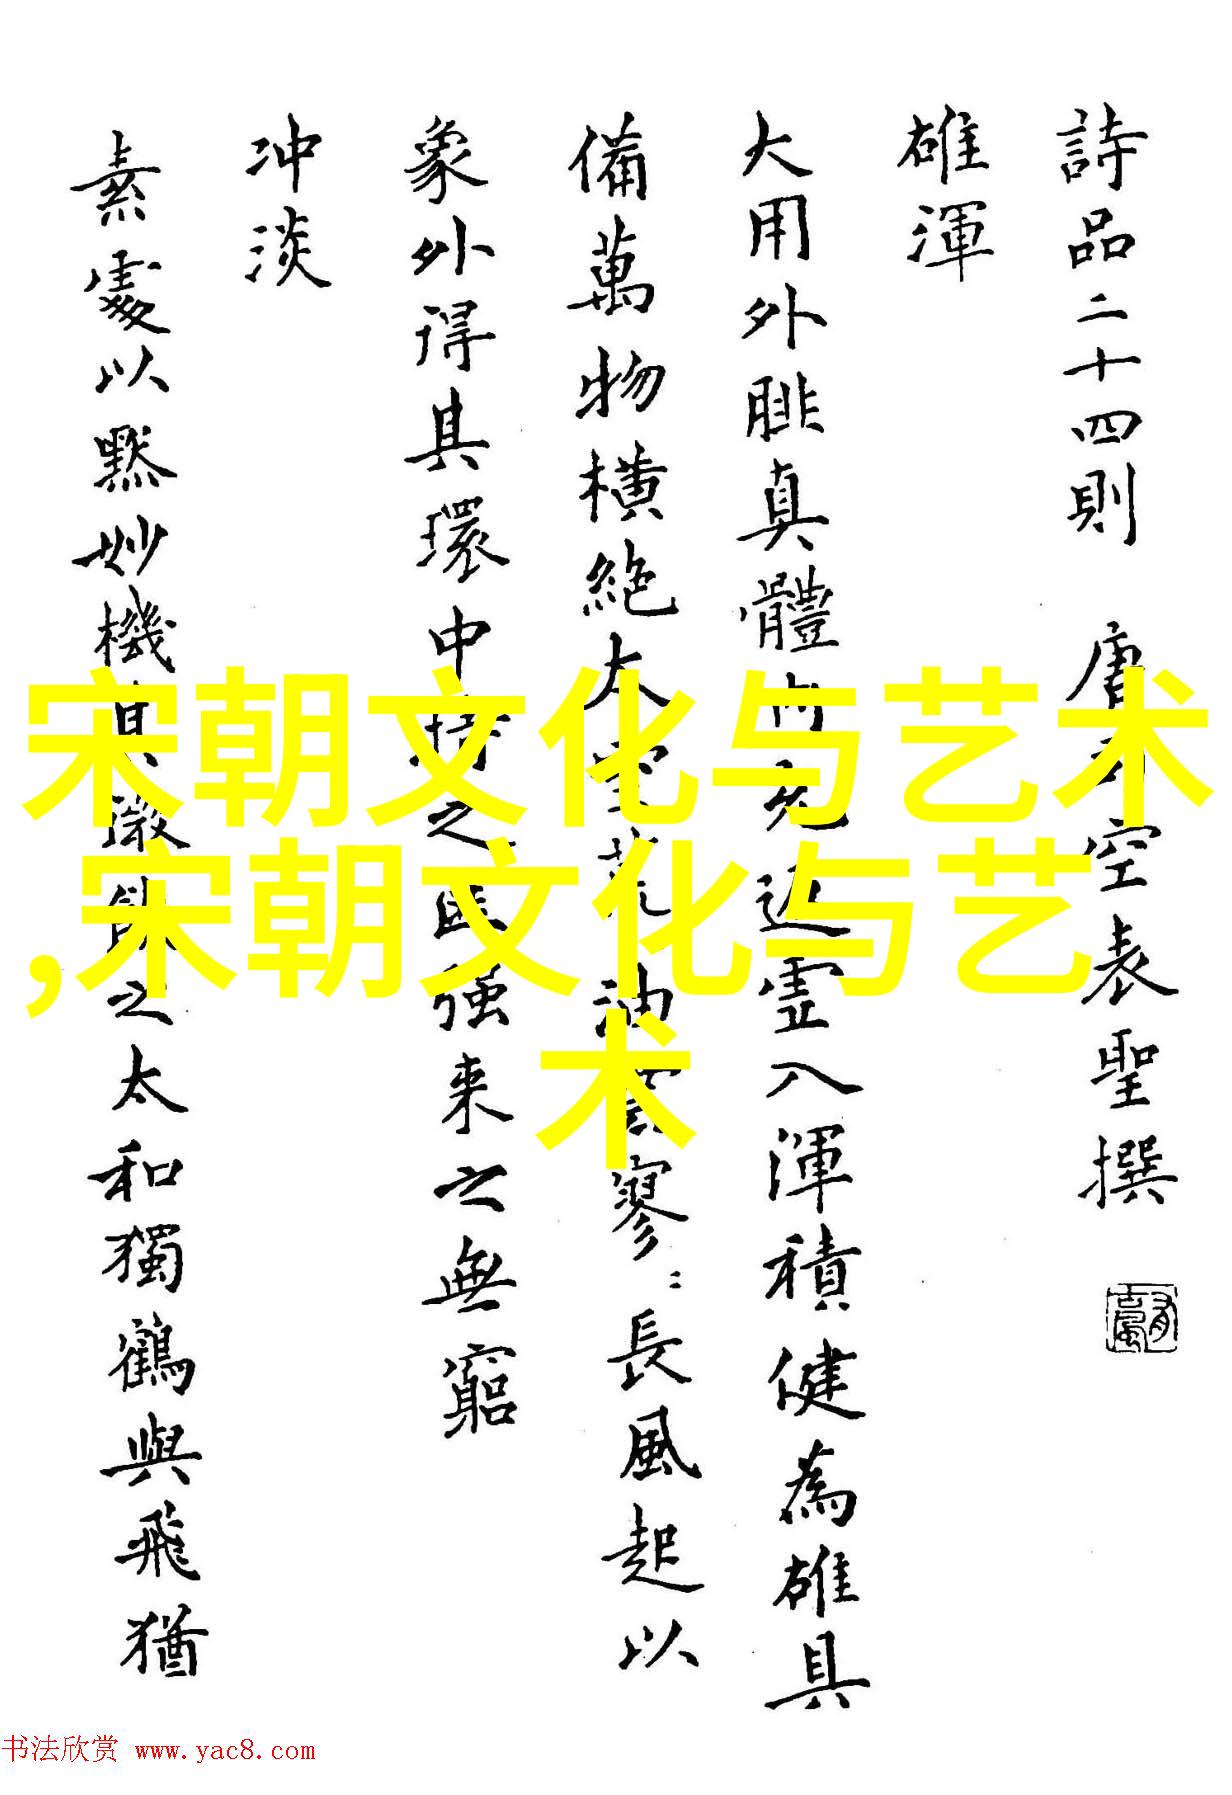 詩品二十四則 唐司空表聖撰
雄渾
大用外腓真體内充返虛入渾積健為雄具
備萬物橫絕太空荒油雲寥〻長風起以
象外得其環中持之匪强来之無窮
冲淡
素處以默妙機其微飲之太和獨鶴與飛猶
宋朝文化与艺术
,宋朝文化与艺
术
书法欣赏 www.yac8.com